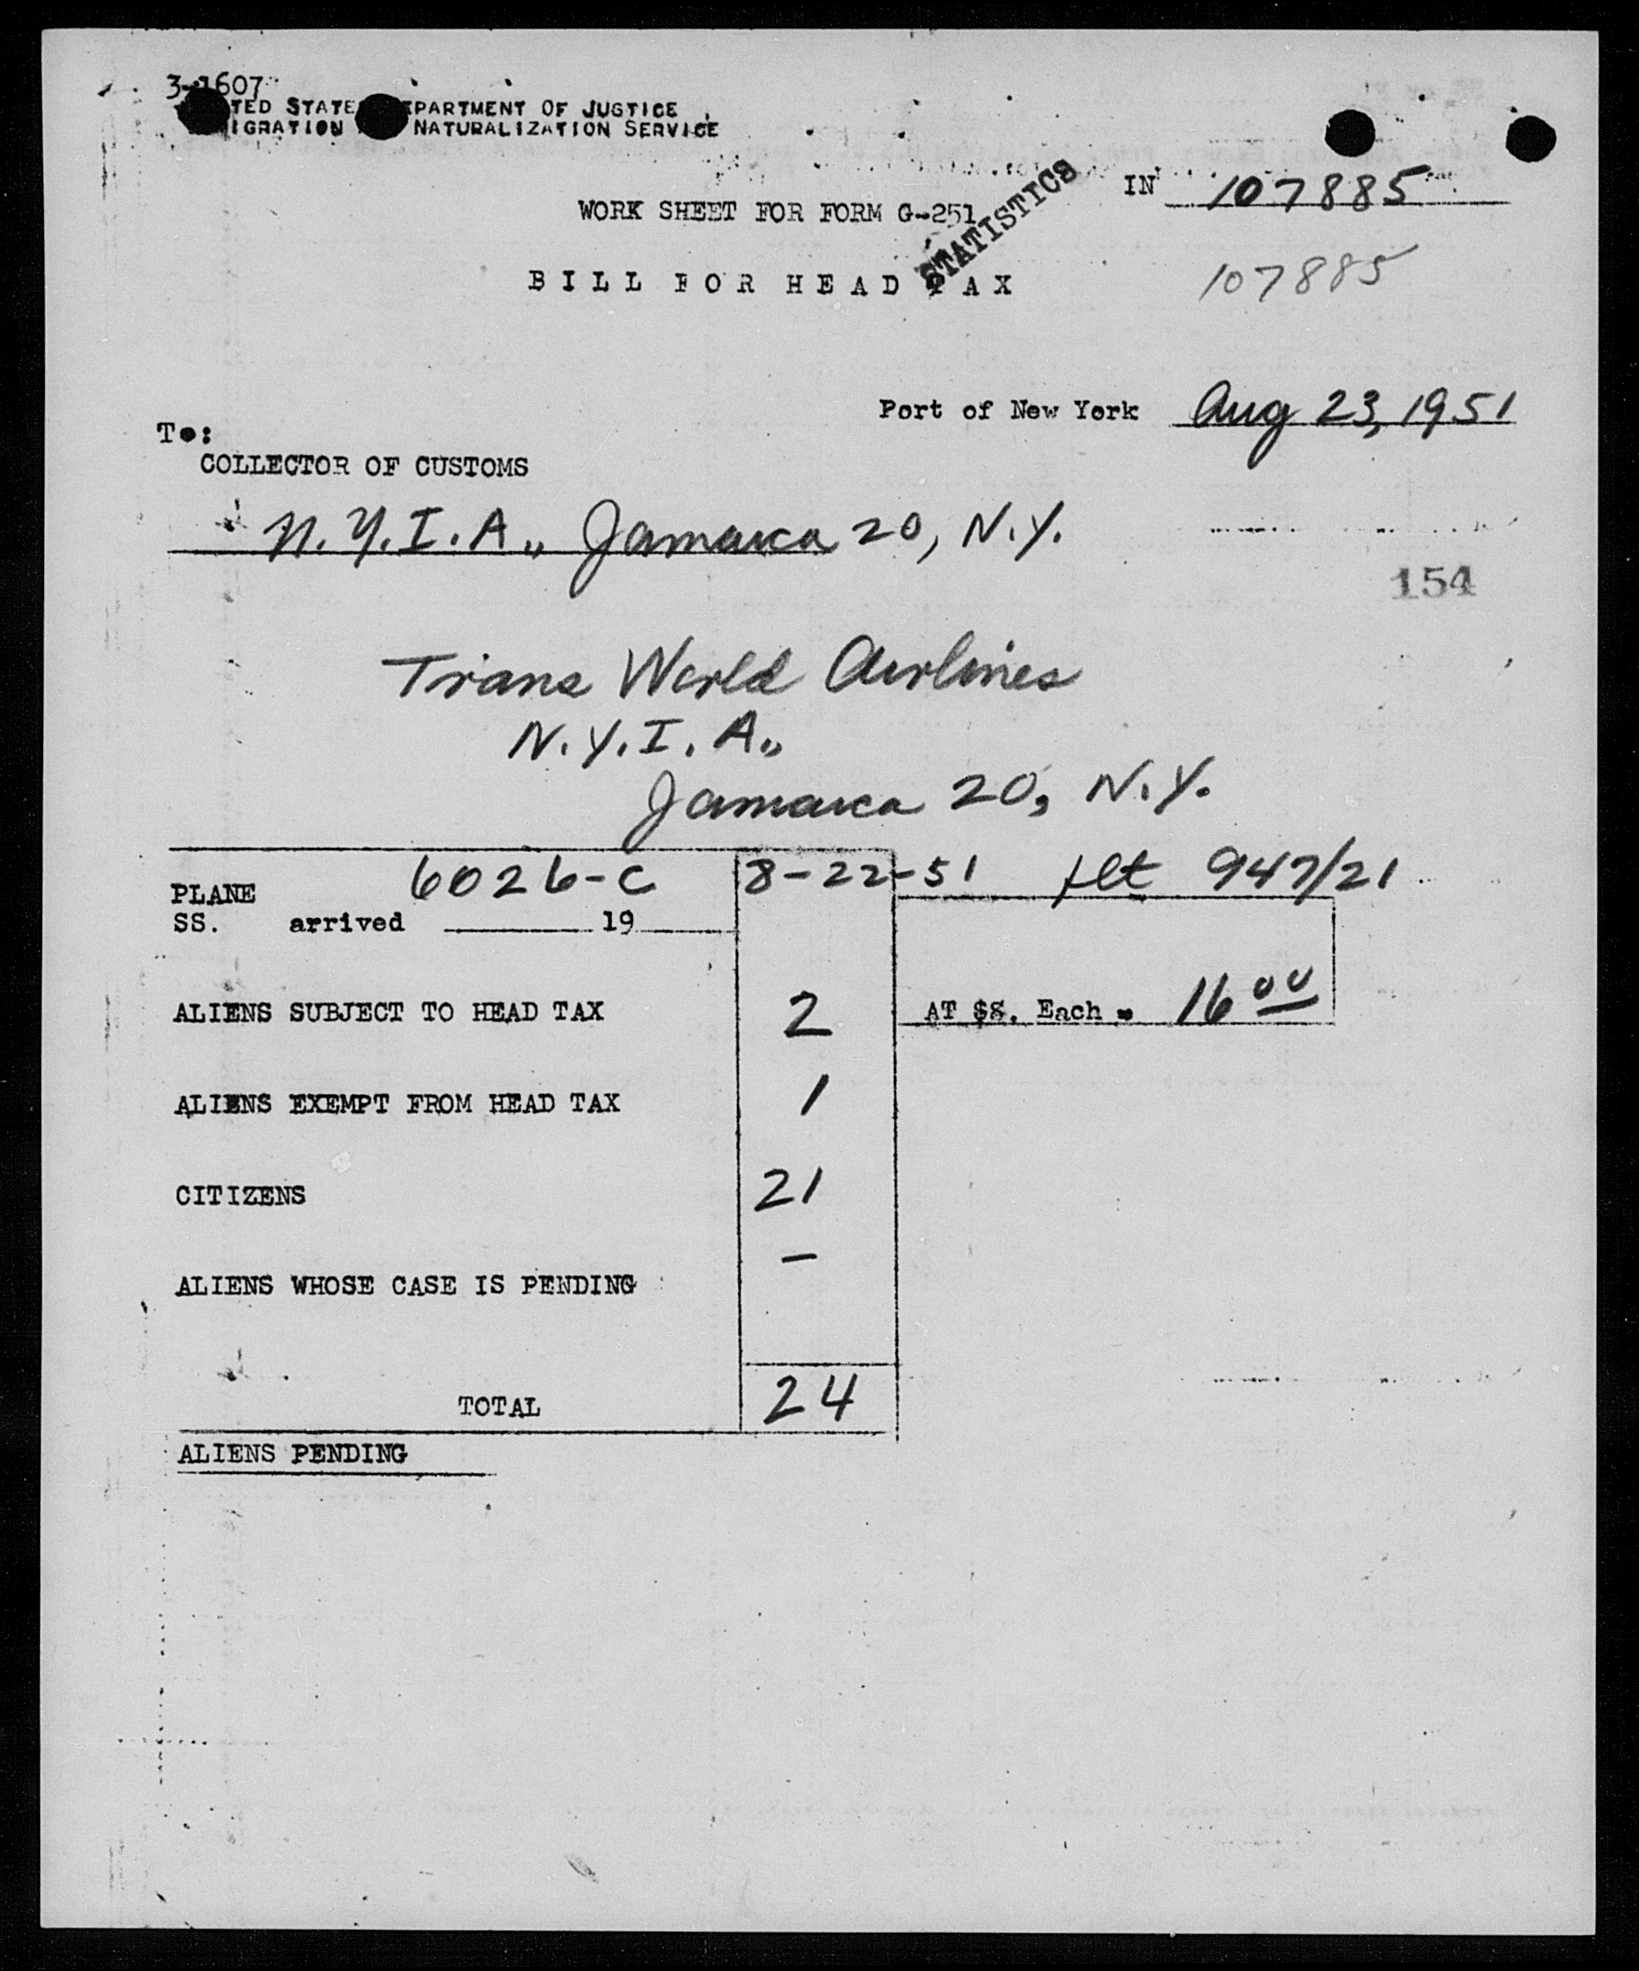 3-1607
TED STATE PARTMENT OF JUSTICE
IGRATION NATURALIZATION SERVICE
IN 107885
WORK SHEET FOR FORM G-251
STATISTICS
BILL FOR HEAD TAX
107885
Port of New York Aug 23, 1951
To:
COLLECTOR OF CUSTOMS
N.Y.I.A., Jamaica 20, N.Y.
154
Trans World Airlines
N.Y.I.A.,
Jamaica 20, N.Y.
6026-C 8-22-51 flt 947/21
PLANE
SS. arrived 19
ALIENS SUBJECT TO HEAD TAX 2 AT $8. Each = 16 00
ALIENS EXEMPT FROM HEAD TAX 1
CITIZENS 21
ALIENS WHOSE CASE IS PENDING –
TOTAL 24
ALIENS PENDING